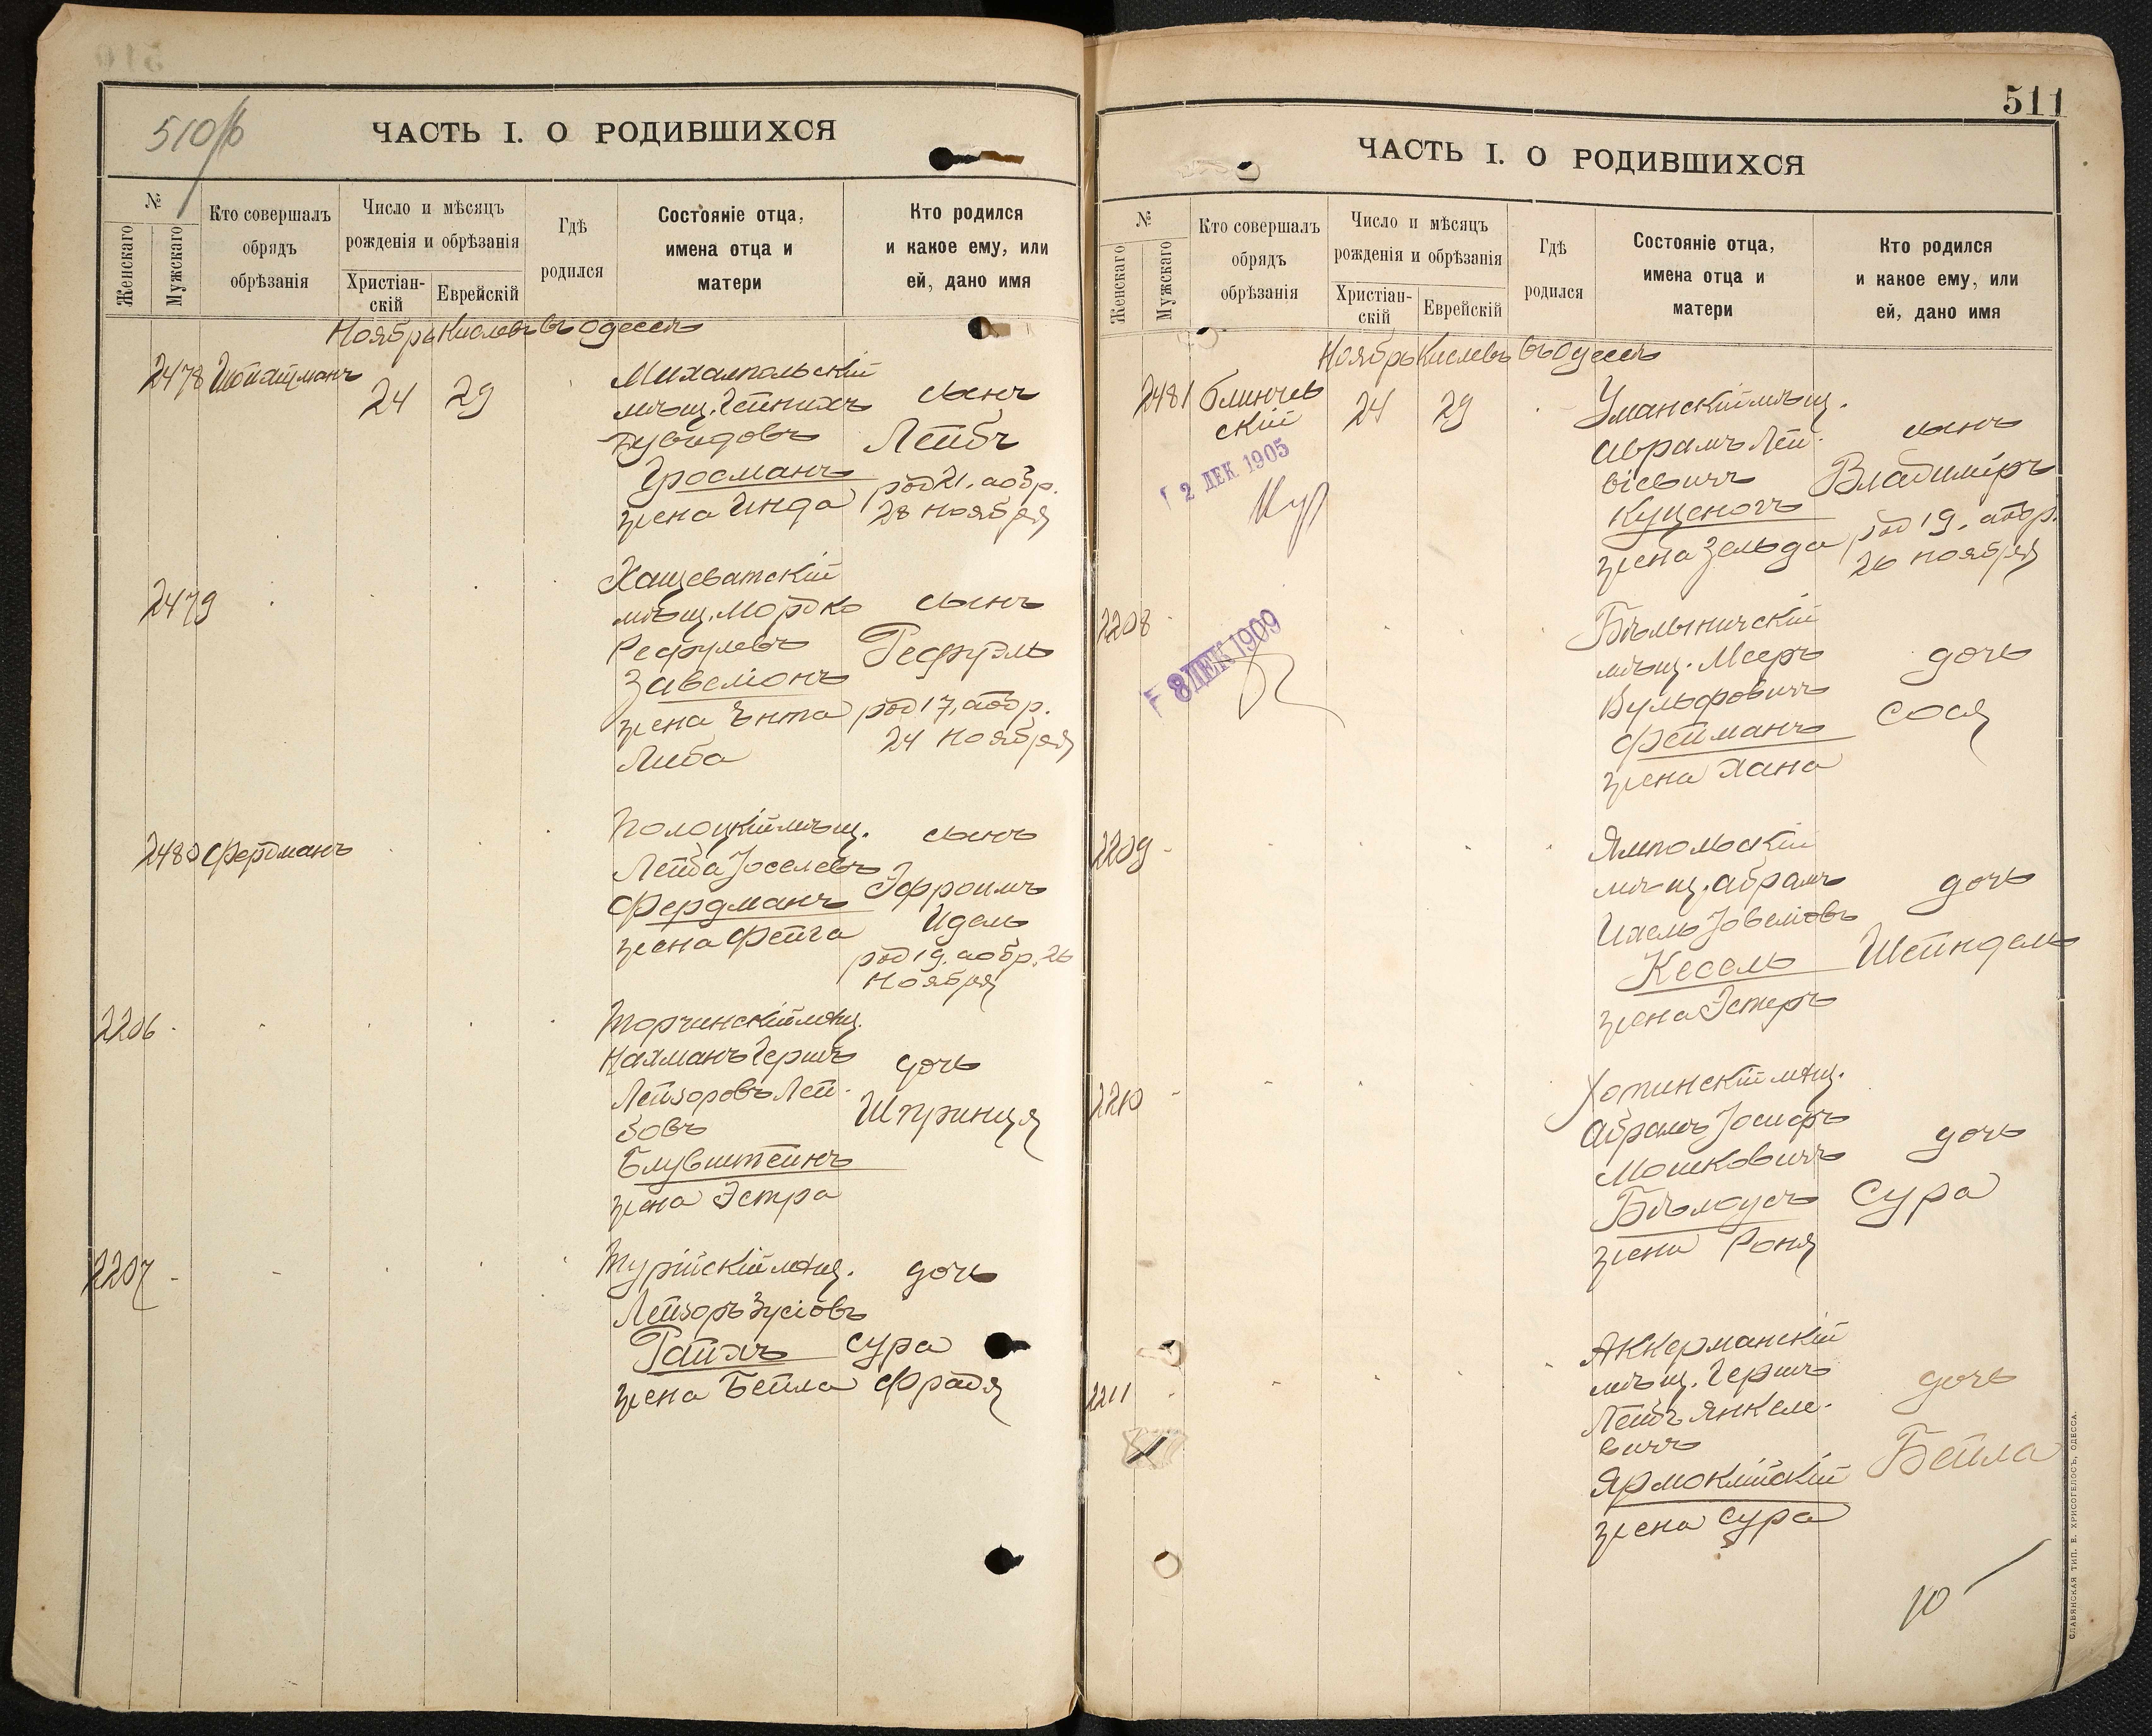 510/б
ЧАСТЬ I. О РОДИВШИХСЯ
№
Женскаго
Мужскаго
Кто совершалъ
обрядъ
обрѣзанія
Число и мѣсяцъ
рожденія и обрѣзанія
Христіан-
скій
Еврейскій
Гдѣ
родился
Состояніе отца,
имена отца и
матери
Кто родился
и какое ему, или
ей, дано имя
Ноябрь Кислевъ въ Одессѣ
2478
24
29
Михалпольскій
мѣщ.
Гросманъ
жена Инда
сынъ
Лейбъ
род 21, а обр.
28 ноября
2479
Хащеватскій
мѣщ. Мордко
Рефулевъ
Завеліонъ
жена Энта
Либа
сынъ
Рефуль
род 17, а обр.
24 ноября
2480 Фердманъ
Полоцкій мѣщ.
Лейба Іоселевъ
Фердманъ
жена Фейга
сынъ
Эфроимъ
Идель
род 19. а обр. 26
ноября
2206
Торчинскій мѣщ.
Нахманъ Гершъ
Лейзоровъ Лей-
бовъ
Блувштейнъ
жена Эстра
дочь
Шпринця
2207
Турійскій мѣщ.
Лейзоръ Зусіовъ
Райхъ
жена Бейла
дочь
Сура
Фрадя
511
ЧАСТЬ I. О РОДИВШИХСЯ
№
Женскаго
Мужскаго
Кто совершалъ
обрядъ
обрѣзанія
Число и мѣсяцъ
рожденія и обрѣзанія
Христіан-
скій
Еврейскій
Гдѣ
родился
Состояніе отца,
имена отца и
матери
Кто родился
и какое ему, или
ей, дано имя
Ноябрь Кислевъ въ Одессѣ
2481 Блинчев
скій
24
29
2 ДЕК 1905
Уманскій мѣщ.
Абрамъ Лей-
Куценогъ
жена Зельда
сынъ
Владиміръ
род 19, а обр.
26 ноября
2208
8 ДЕК 1909
Бѣлыничскій
мѣщ. Мееръ
Вульфовичъ
Фейманъ
жена Хана
дочь
Сося
2209
Ямпольскій
мѣщ. Абрамъ
Кесель
жена Эстеръ
дочь
Шейндель
2210
Хотинскій мѣщ.
Абрамъ Іосифъ
Мошковичъ
Бѣлоусъ
жена Роня
дочь
Сура
2211
Аккерманскій
мѣщ. Гершъ
Лейбъ Янкеле-
вичъ
жена Сура
дочь
Бейла
10
СЛАВЯНСКАЯ ТИП. Е. ХРИСОГЕЛОСЪ, ОДЕССА.